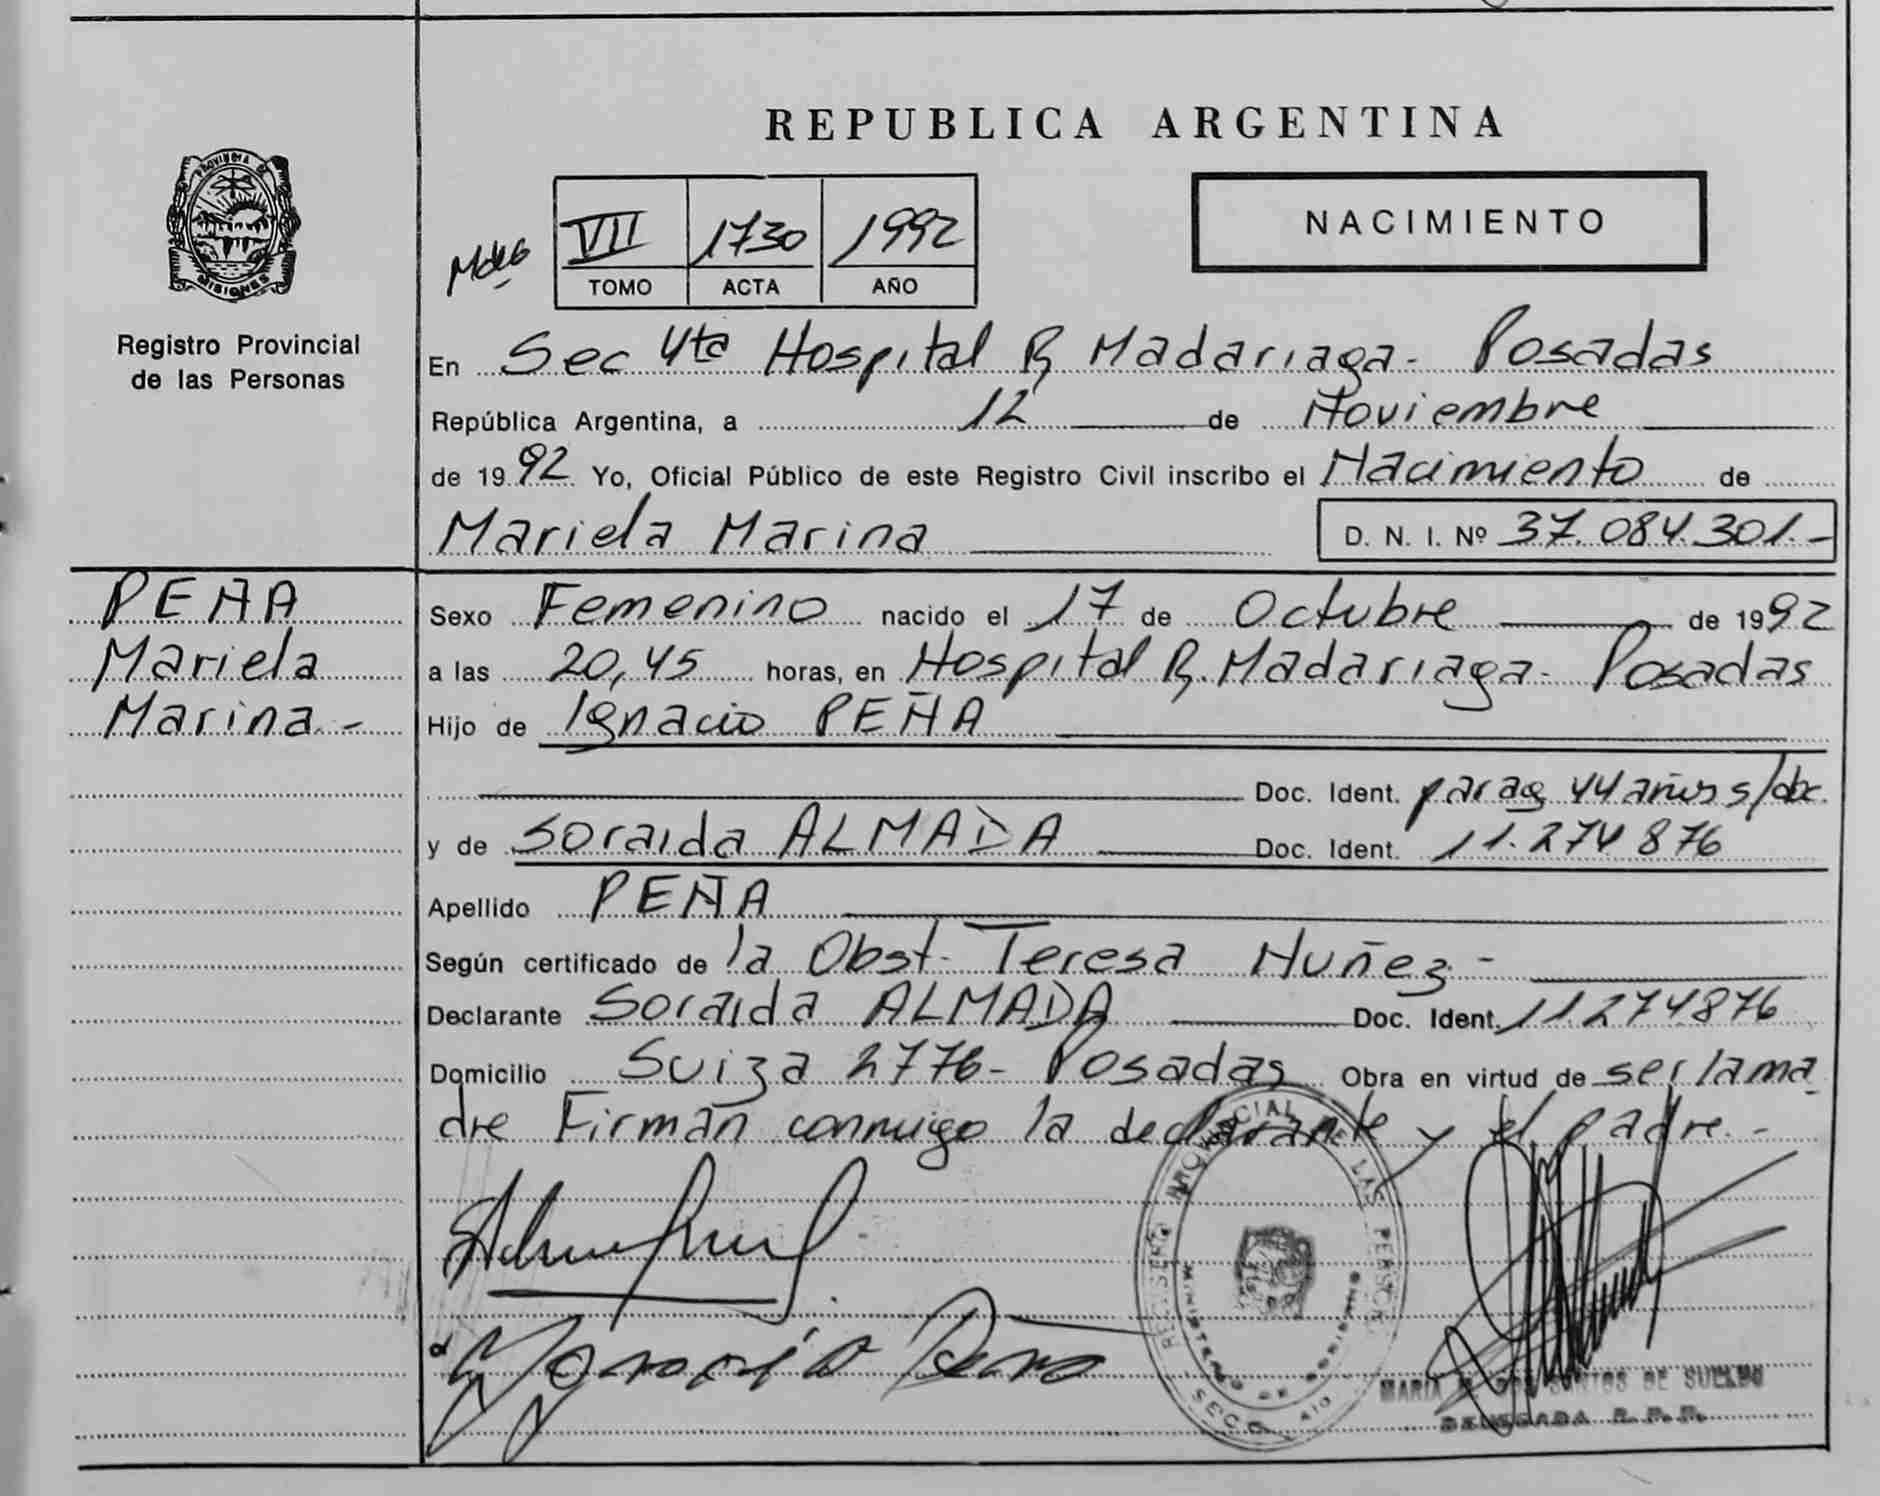 REPUBLICA ARGENTINA
PROVINCIA DE
MISIONES
Registro Provincial
de las Personas
VII 1730 1992
TOMO ACTA AÑO
NACIMIENTO
En Sec 4ta Hospital R Madariaga - Posadas
República Argentina, a 12 de Noviembre
de 1992 Yo, Oficial Público de este Registro Civil inscribo el Nacimiento de
Mariela Marina D. N. I. Nº 37.084.301.-
PEÑA
Mariela
Marina.-
Sexo Femenino nacido el 17 de Octubre de 1992
a las 20,45 horas, en Hospital R. Madariaga - Posadas
Hijo de Ignacio PEÑA
Doc. Ident. parag 44 años s/doc.
y de Soraida ALMADA Doc. Ident. 11.274.876
Apellido PEÑA
Según certificado de la Obst. Teresa Nuñez -
Declarante Soraida ALMADA Doc. Ident. 11274876
Domicilio Suiza 2776 - Posadas Obra en virtud de ser la ma
dre Firman conmigo la declarante y el padre.-
REGISTRO PROVINCIAL DE LAS PERSONAS
MINISTERIO DE GOBIERNO
MARIA DOS SANTOS DE
DELEGADA R.P.P.